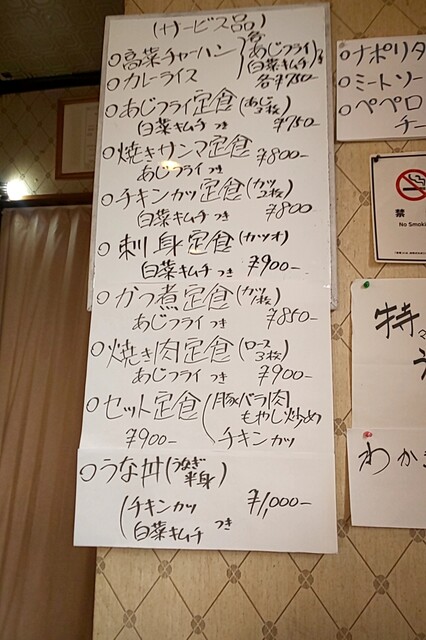 (サービス品)
○高菜チャーハン
○カレーライス
各
あじフライ
白菜キムチ
各¥750
○あじフライ定食(あじ2枚)
白菜キムチつき ¥750-
○焼きサンマ定食 ¥800-
あじフライつき
○チキンカツ定食(カツ2枚)
白菜キムチつき ¥800
○刺身定食(カツオ)
白菜キムチつき ¥900-
○かつ煮定食(カツ1枚)
あじフライつき ¥850-
○焼き肉定食(ロース3枚)
あじフライつき ¥900-
○セット定食(豚バラ肉
もやし炒め
¥900- チキンカツ
○うな丼(うなぎ半身)
(チキンカツ
白菜キムチ つき ¥1,000-
○ナポリタ
○ミートソー
○ペペロ
チー
禁
No Smoki
特
わか